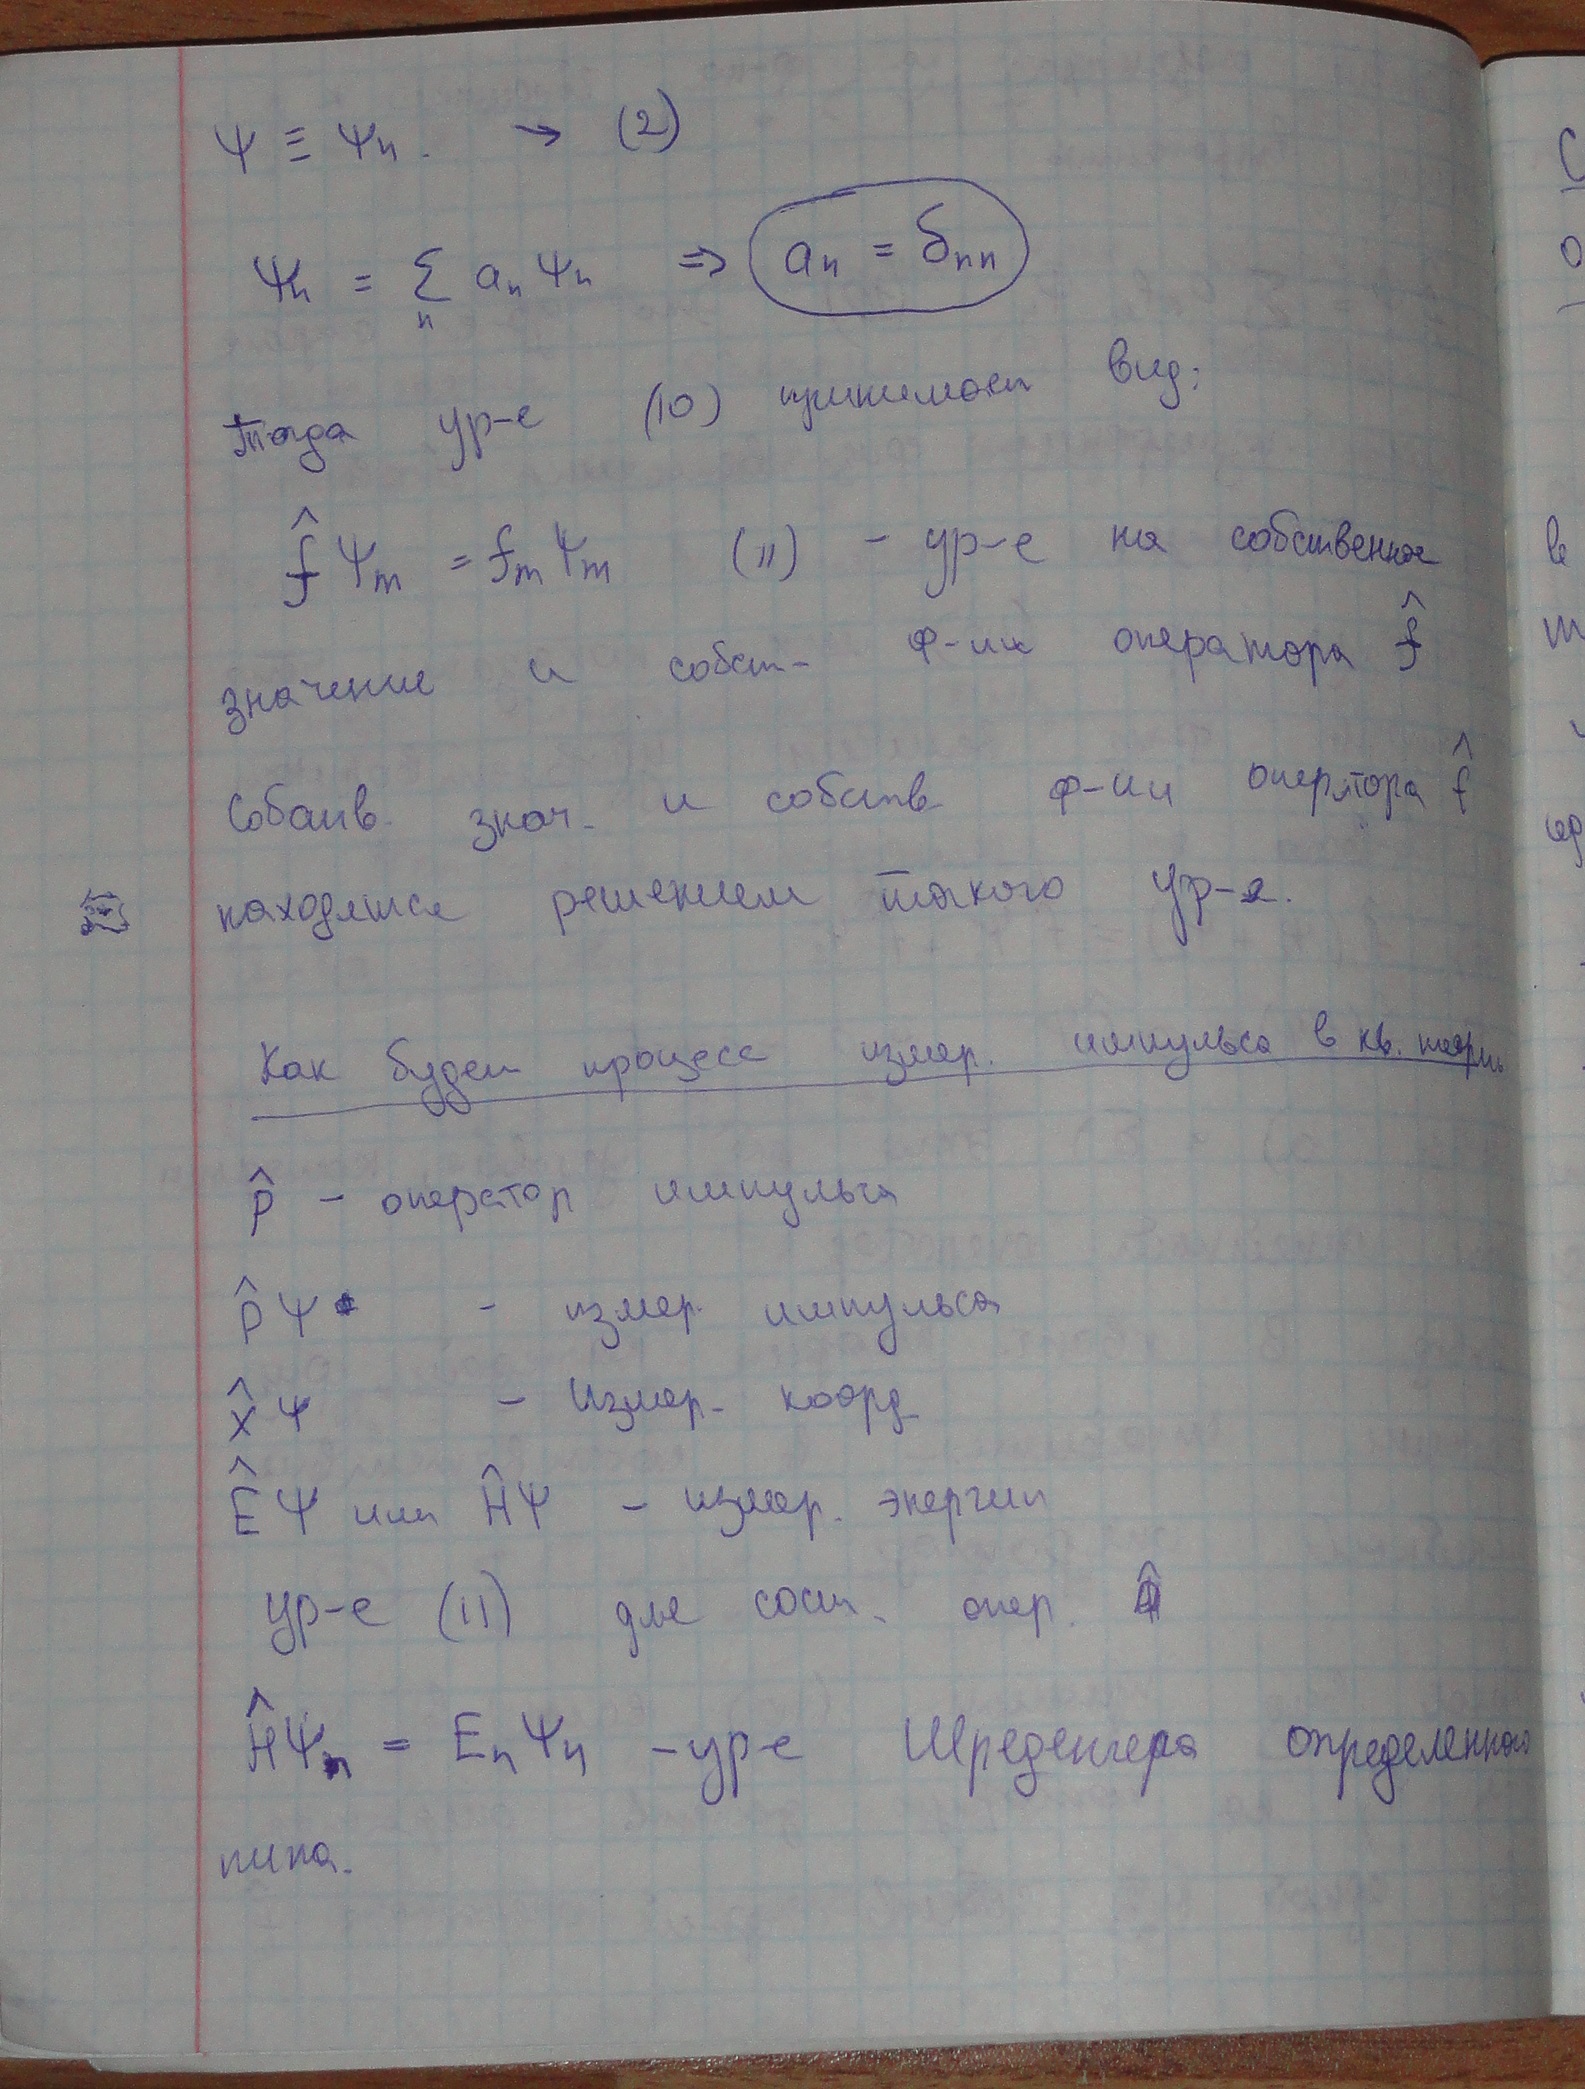 Ψ ≡ Ψn. → (2)
Ψn = Σ an Ψn ⇒ an = δnn
n
Тогда ур-е (10) принимает вид:
f̂ Ψm = fm Ψm (11) - ур-е на собственное
значение и собст- ф-ии оператора f̂
Собств. знач. и собств ф-ии оператора f̂
находятся решением такого ур-я.
Как будет процесс измер. импульса в кв. теории
p̂ - оператор импульса
p̂Ψ - измер. импульса
x̂Ψ - Измер. коорд
ÊΨ или ĤΨ - измер. энергии
ур-е (11) для сост. опер.
ĤΨn = EnΨn - ур-е Шреденгера определенного
типа.